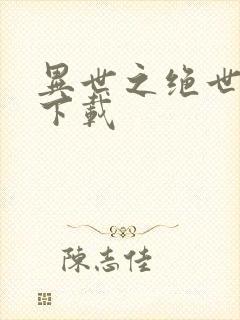 異世之绝世
下載
陳志佳